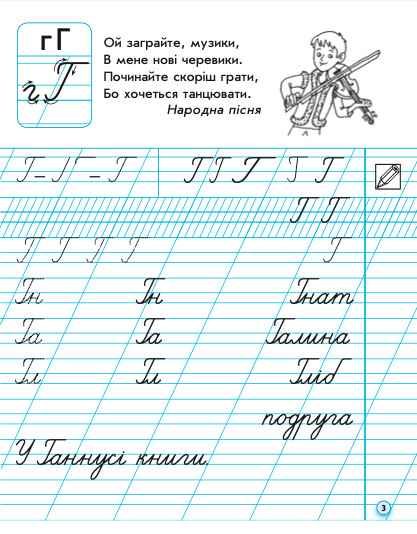 г Г
г Г
Ой заграйте, музики,
В мене нові черевики.
Починайте скоріш грати,
Бо хочеться танцювати.
Народна пісня
Г Г
Г Г Г Г
Гн Гн Гнат
Га Га Галина
Гл Гл Гліб
подруга
У Ганнусі книги.
3